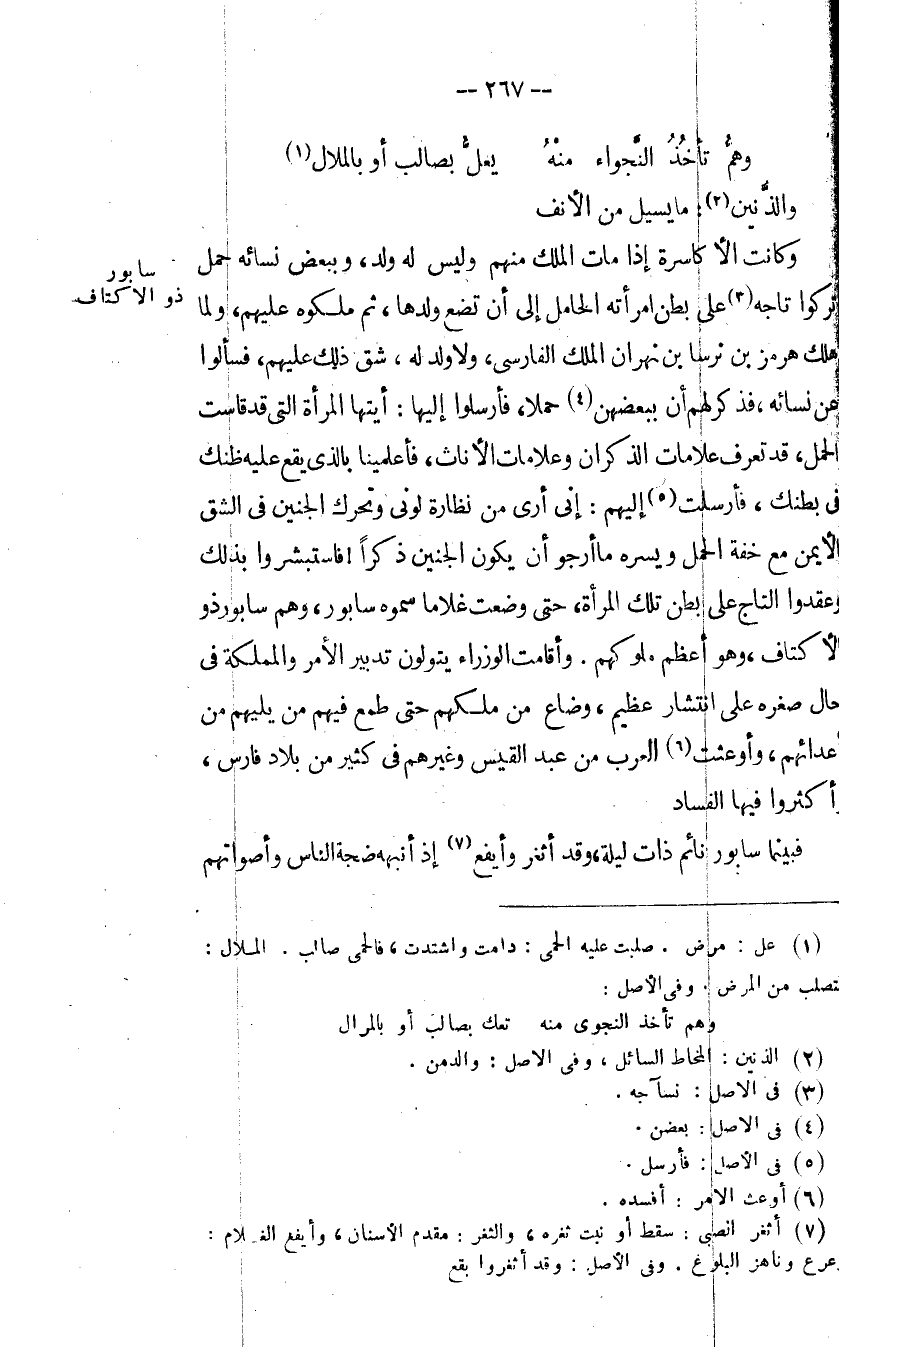 -- ٢٦٧ --
وهمُّ تأخُذُ النَّجواء منْهُ يعلُّ بصالب أو بالملال(١)
والذَّنين(٢): مايسيل من الأنف
وكانت الأكاسرة إذا مات الملك منهم وليس له ولد، وببعض نسائه حمل
سابور
ذو الاكتاف
تركوا تاجه(٣)على بطن امرأته الحامل إلى أن تضع ولدها، ثم ملكوه عليهم، ولما
هلك هرمز بن نرسا بن بهران الملك الفارسى، ولا ولد له، شق ذلك عليهم، فسألوا
عن نسائه، فذكر لهم أن ببعضهن(٤) حملا، فأرسلوا إليها: أيتها المرأة التى قد قاست
الحمل، قد تعرف علامات الذكران وعلامات الأناث، فأعلمينا بالذى يقع عليه ظنك
فى بطنك، فأرسلت(٥)إليهم: إنى أرى من نظارة لونى وتحرك الجنين فى الشق
الأيمن مع خفة الحمل ويسره ما أرجو أن يكون الجنين ذكراً! فاستبشروا بذلك
وعقدوا التاج على بطن تلك المرأة، حتى وضعت غلاما سموه سابور، وهم سابور ذو
الأكتاف، وهو أعظم ملوكهم. وأقامت الوزراء يتولون تدبير الأمر والمملكة فى
حال صغره على انتشار عظيم، وضاع من ملكهم حتى طمع فيهم من يليهم من
أعدائهم، وأوعثت(٦) العرب من عبد القيس وغيرهم فى كثير من بلاد فارس،
وأكثروا فيها الفساد
فبينما سابور نائم ذات ليلة، وقد أثغر وأيفع(٧) إذ أنبهه ضجة الناس وأصواتهم
(١) عل: مرض. صلبت عليه الحمى: دامت واشتدت، فالحمى صالب. الملال:
التصلب من المرض. وفى الأصل:
وهم تأخذ النجوى منه تعك بصالب أو بالمرال
(٢) الذنين: المخاط السائل، وفى الاصل: والدمن.
(٣) فى الاصل: نسآجه.
(٤) فى الاصل: بعضن.
(٥) فى الأصل: فأرسل.
(٦) أوعث الامر: أفسده.
(٧) أثغر الصبى: سقط أو نبت ثغره، والثغر: مقدم الأسنان، وأيفع الغلام:
ترعرع وناهز البلوغ. وفى الأصل: وقد أثغروا بقع